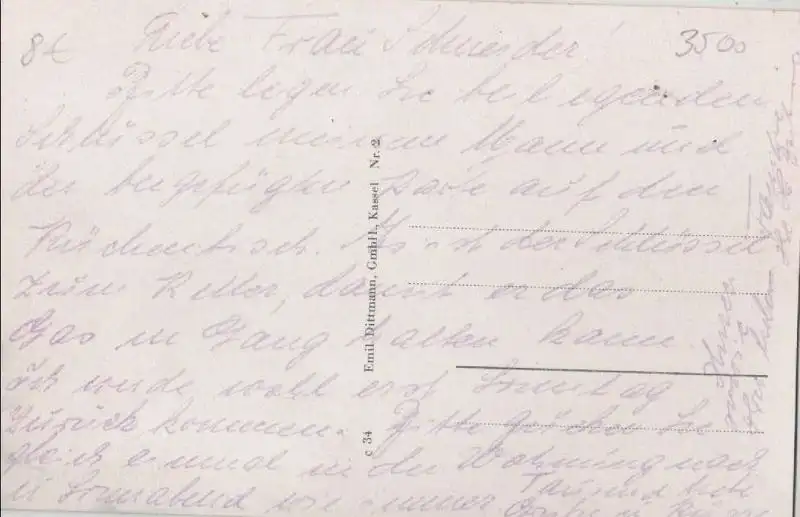 8€
3500
Liebe Frau Schneider!
Bitte legen Sie beiliegenden
Schlüssel meinem Mann und
der beigefügten Karte auf den
Küchentisch. Es ist der Schlüssel
zum Keller, damit er das
Gas in Gang halten kann.
Ich werde wohl erst Sonntag
zurück kommen. Bitte gehen Sie
gleich einmal in die Wohnung nach
u Sonnabend wie immer.
Tausend
Grüße u. Küsse
Emil Dittmann, GmbH., Kassel Nr. 2
c 34